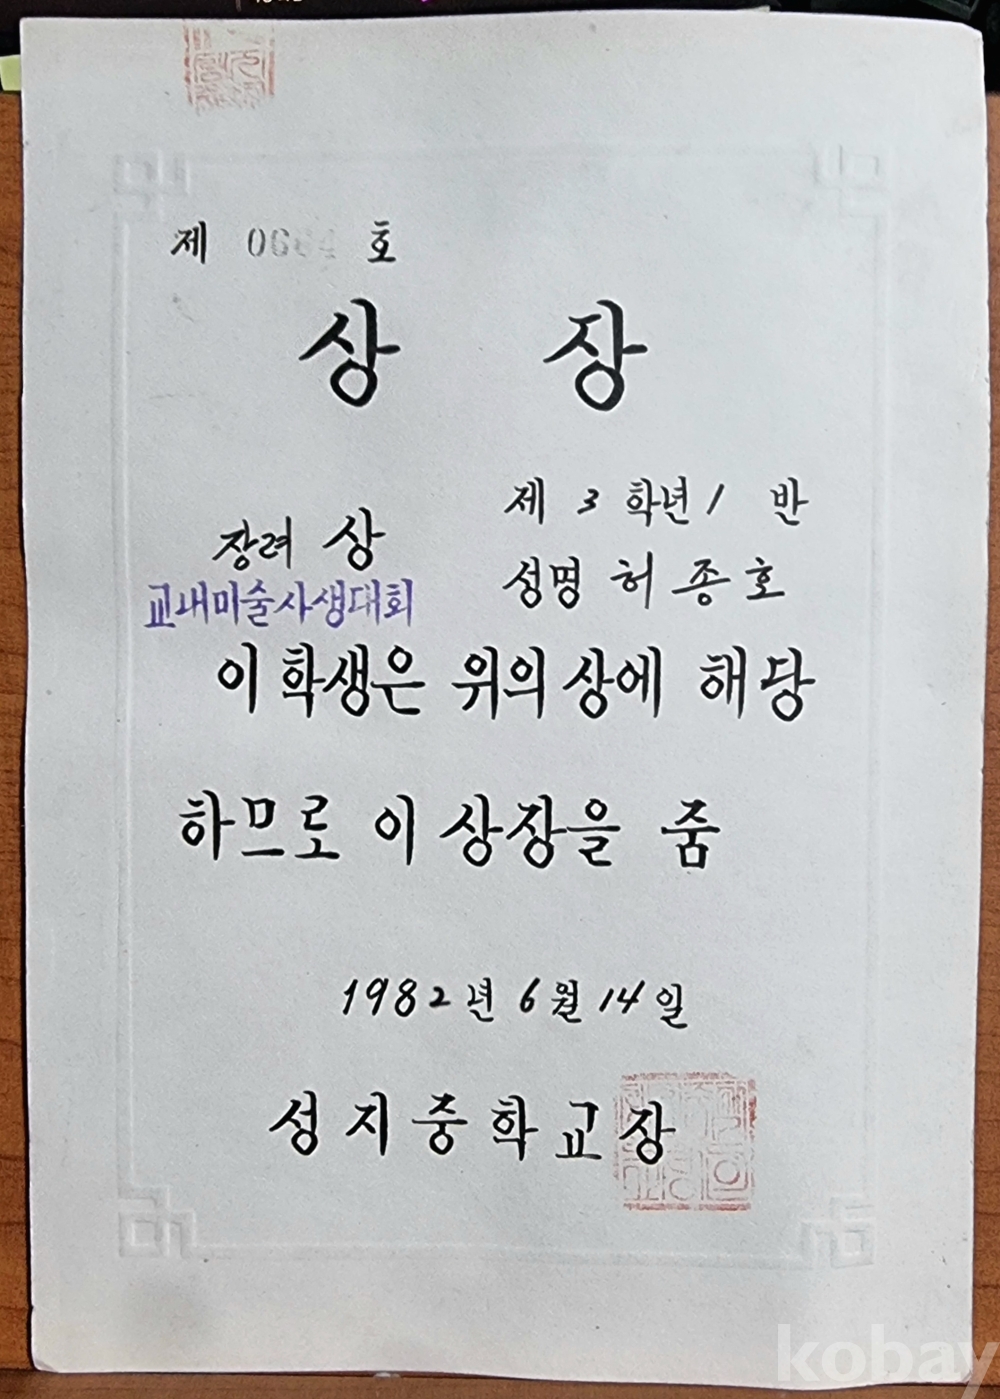 제 0664 호
상 장
제 3 학년 1 반
장려 상
성명 허종호
교내미술사생대회
이 학생은 위의 상에 해당
하므로 이 상장을 줌
1982년 6월 14일
성지중학교장
kobay